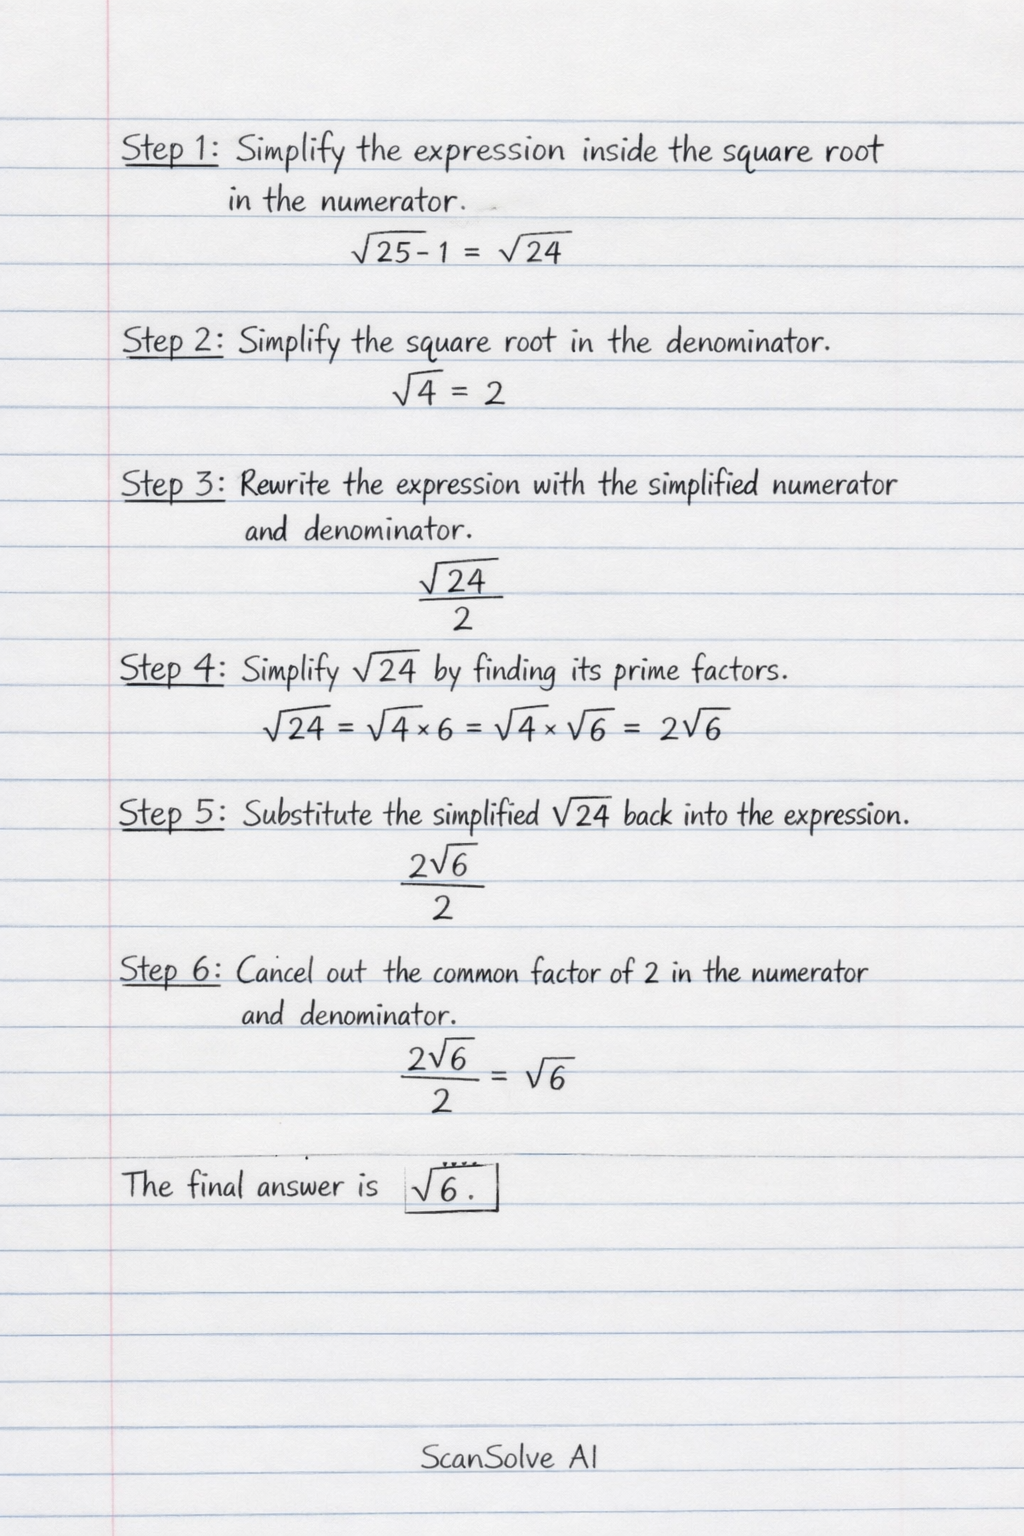 Step 1: Simplify the expression inside the square root
in the numerator.
√25 - 1 = √24
Step 2: Simplify the square root in the denominator.
√4 = 2
Step 3: Rewrite the expression with the simplified numerator
and denominator.
√24
2
Step 4: Simplify √24 by finding its prime factors.
√24 = √4 × 6 = √4 × √6 = 2√6
Step 5: Substitute the simplified √24 back into the expression.
2√6
2
Step 6: Cancel out the common factor of 2 in the numerator
and denominator.
2√6
2
= √6
The final answer is √6.
ScanSolve AI